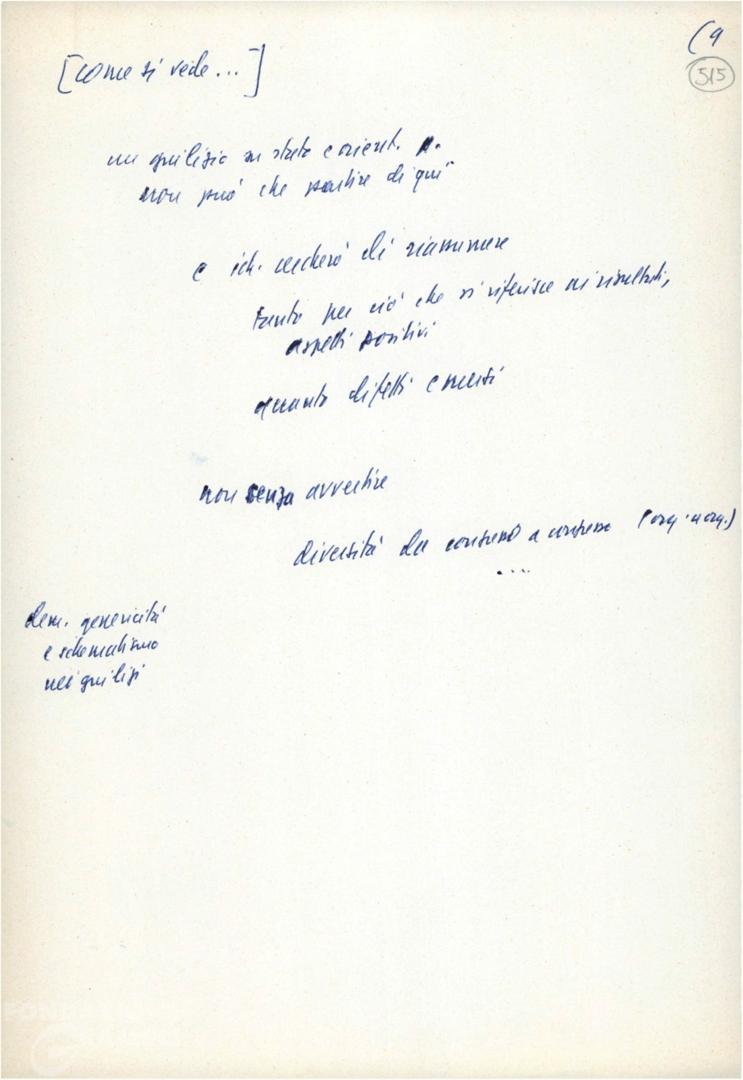 (9
515
[come si vede...]
un giudizio su stato e orient. p.
non può che partire di qui
e ich. cercherò di riassumere
tanto per ciò che si riferisce ai risultati,
aspetti positivi
quanto difetti emersi
non senza avvertire
diversità da congresso a congresso
...
gen. genericità
e schematismo
nei giudizi
FOND